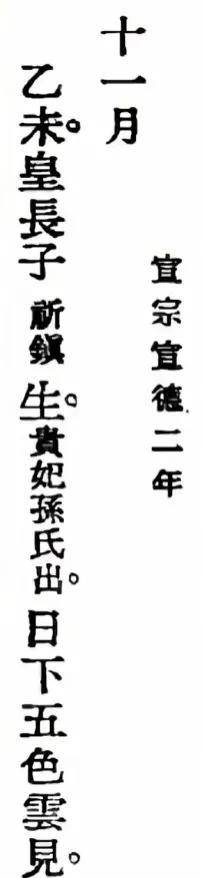 宣宗宣德二年
十一月
乙未。皇長子祈鎭生。貴妃孫氏出。日下五色雲見。